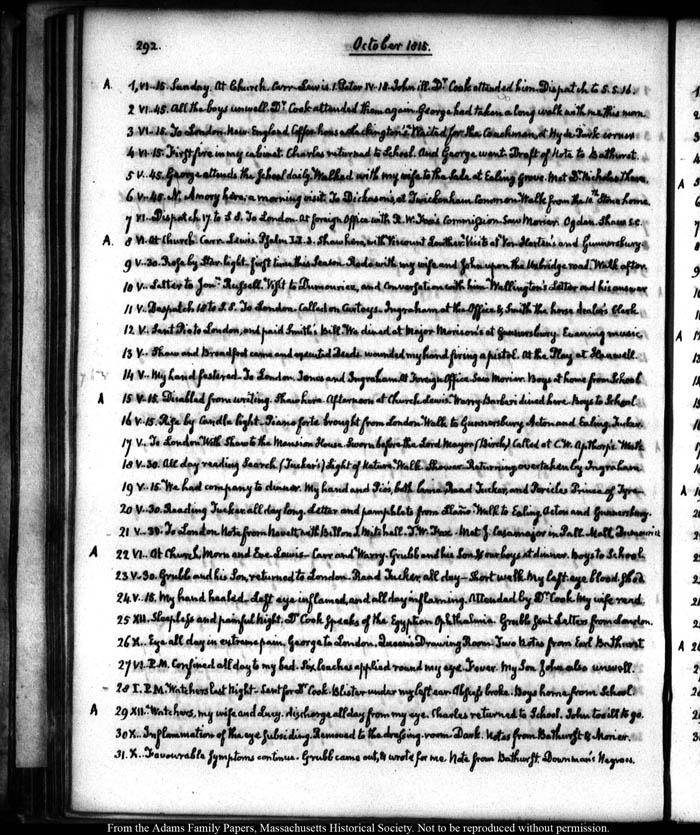 292.
October 1815.
A. 1. VI.15. Sunday. At Church. Carr. Lewis. 1. Peter IV.18. John ill. Dr. Cook attended him. Dispatch to S.S. 16.
2 VI.45. All the boys unwell. Dr. Cook attended them again. George had taken a long walk with me this morn
3 VI.15. To London. New England Coffee house. Lackington's. Waited for the Coachman, at Hyde Park corner
4 VI.15. First fire in my cabinet. Charles returned to School. And George went. Draft of Note to Bathurst.
5 V.45. George attends the School daily. Walked with my wife to the Sale at Ealing Grove. Met Dr. Nicholas there.
6 V.45. N. Amory here, a morning visit. To Dickasons, at Twickenham Common. Walk from the 10th. Stone home.
7 VI. Dispatch 17. to S.S. To London. At foreign Office with R. W. Fox's Commission. Saw Morier. Ogden. Shaw &c.
A. 8 VI. At Church. Carr. Lewis. Psalm Shaw here, with Viscount Visits at Von Harten's and Gunnersbury
9 V.30. Rose by Star-light. first time this Season. Rode with my wife and John upon the Uxbridge road. Walk after.
10 V. Letter to Jonn. Russell. Visit to Dumouriez, and Conversation with him. Wellington's Letter and his answer
11 V. Despatch 18 to S.S. To London. Called on Ingraham at the Office & Smith the horse dealer's Clerk
12 V. Sent Pio to London, and paid Smith's Bill. We dined at Major Morison's at Gunnersbury. Evening music
13 V. Shaw and Bradford came and executed Deeds. wounded my hand firing a pistol. At the Play at Hanwell.
14 V. My hand festered. To London. Jones and Ingraham. At Foreign Office. Saw Morier. Boys at home from School
A 15 V.15. Disabled from writing. Shaw here. Afternoon at Church. Lewis. Warry. Barber dined here. Boys to School
16 V.15. Rise by Candle light. Piano forte brought from London. Walk to Gunnersbury Acton and Ealing. Tucker.
17 V. To London. With Shaw to the Mansion House. Sworn before the Lord Mayor (Birch) Called at C. W. Apthorp's. Walk
18 V.30. All day reading Search (Tucker's) Light of Nature. Walk. Shower. Returning overtaken by Ingraham
19 V.15. We had company to dinner. My hand and Pio's, both lame. Read Tucker, and Pericles Prince of Tyre
20 V.30. Reading Tucker all day long. Letter and pamphlets from Walk to Ealing Acton and Gunnersbury.
21 V.30. To London. Note from with Billon. Mitchell. T. W. Fox. Met J. Casamajor in Pall Mall. Dumouriez
A 22 VI. At Church, Morn and Eve. Lewis. Carr and Warry. Grubb and his Son, & our boys at dinner. boys to School
23 V.30. Grubb and his Son, returned to London. Read Tucker all day—Short walk. My left eye blood shot
24. V.15. My hand healed. Left eye inflamed, and all day inflaming. Attended by Dr. Cook. My wife read
25 XII. Sleepless and painful Night. Dr. Cook speaks of the Egyptian Ophthalmia. Grubb sent Letters from London.
26 X. Eye all day in extreme pain. George to London. Queen's Drawing Room. Two Notes from Earl Bathurst
27 VI. P.M. Confined all day to my bed. Six leaches applied round my eye. Fever. My Son John also unwell.
28 I. P.M. Watchers last Night. Sent for Dr. Cook. Blister under my left ear. Abscess broke. Boys home from School
A 29 XII. Watchers, my wife and Lucy. discharge all day from my eye. Charles returned to School. John too ill to go.
30 X. Inflammation of the eye subsiding. Removed to the dressing-room. Dark. Notes from Bathurst & Morier.
31. X. Favourable Symptoms continue. Grubb came out, & wrote for me. Note from Bathurst. Downman's Negroes.
From the Adams Family Papers, Massachusetts Historical Society. Not to be reproduced without permission.